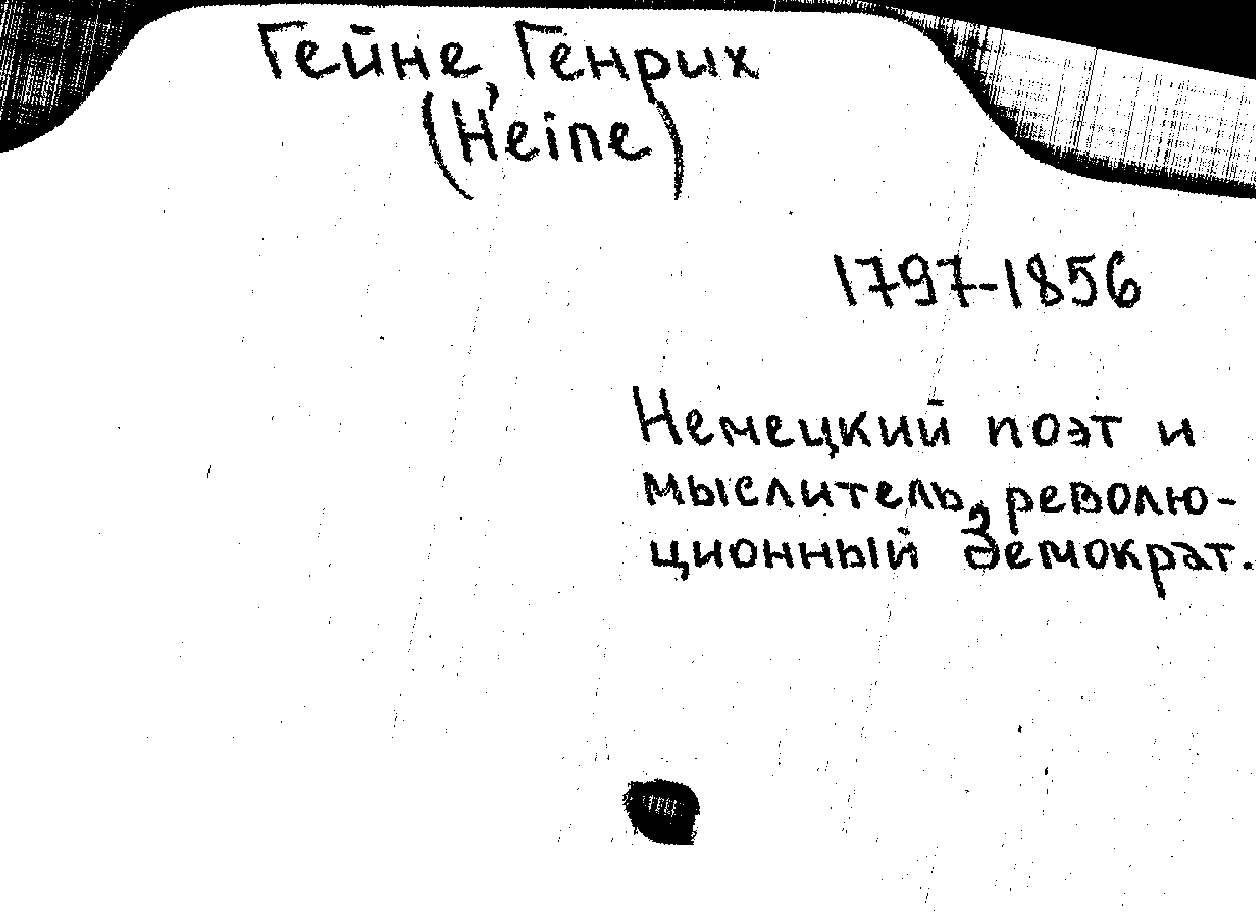 Гейне, Генрих
(Heine)
1797-1856
Немецкий поэт и
мыслитель, револю-
ционный демократ.